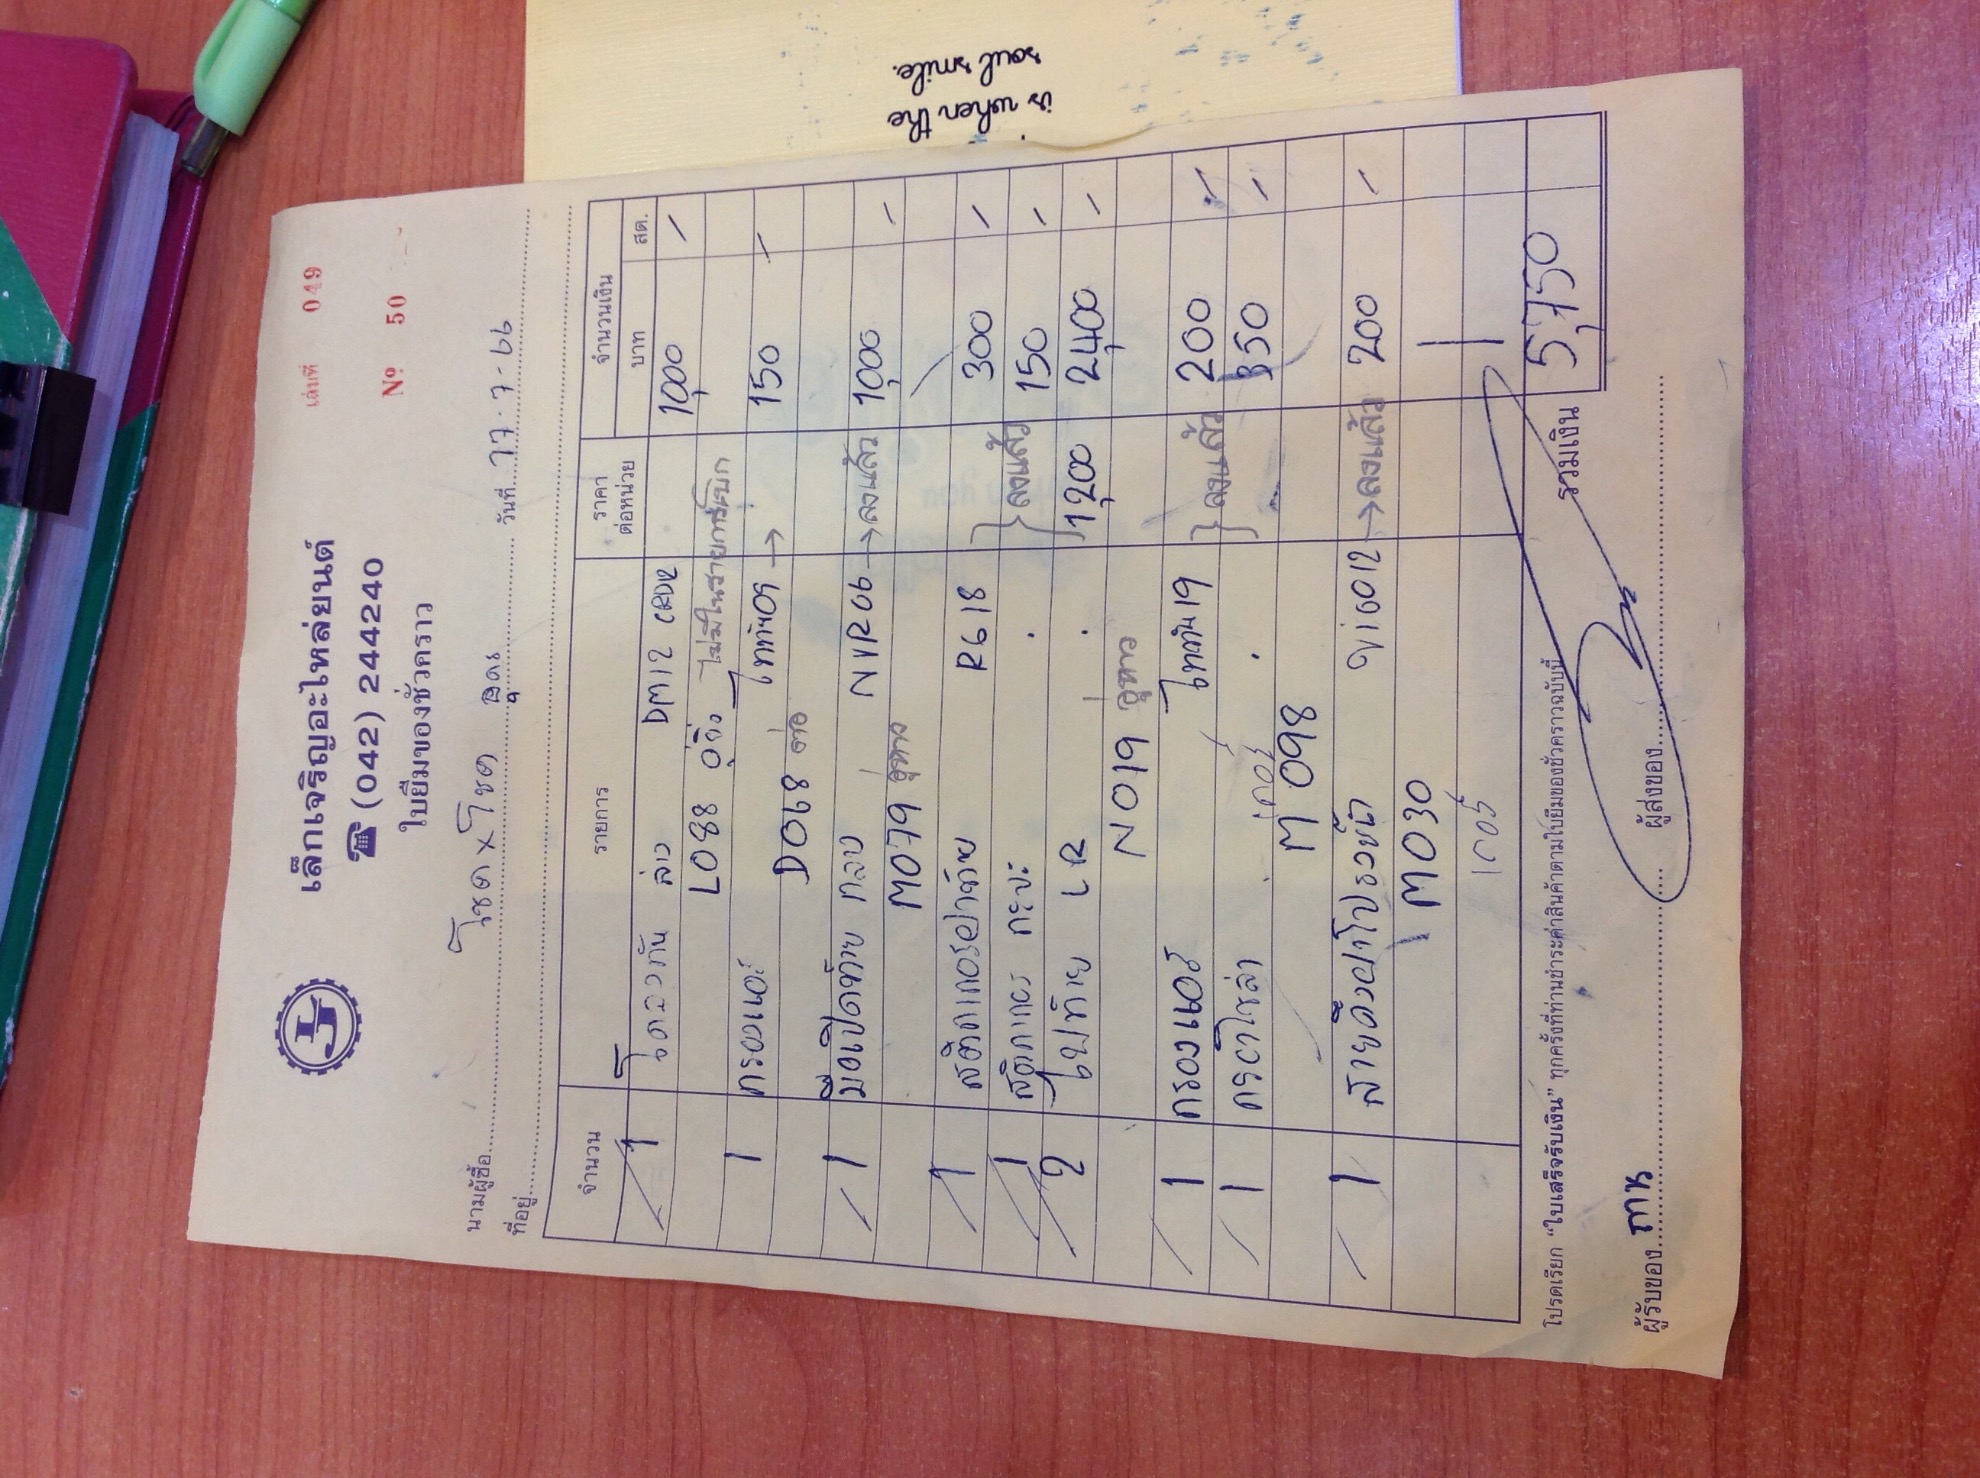 เล่มที่ 049
เล็กเจริญอะไหล่ยนต์
☎ (042) 244240
Nº 50
ใบยืมของชั่วคราว
นามผู้ซื้อ โชค x โชค อุดร วันที่ 17-7-66
ที่อยู่
จำนวน รายการ ราคาต่อหน่วย จำนวนเงิน
บาท สต.
1 ล่าง DM12 1,000 -
L088 ไม่มีในรายการเบิก
1 กรองแอร์ ไททัน09 → 150 -
D068
1 มือเปิดท้าย กลาง NVR06 → ลงแล้ว 1,000 -
M079
1 สติกเกอร์ฝาท้าย R618 } ลงแล้ว 300 -
1 สติกเกอร์ กระบะ . 150 -
2 ไฟท้าย LR . 1,200 2,400 -
N019
1 กรองแอร์ ไททัน19 } ลงแล้ว 200 -
1 . 350 -
M098
1 สายดึงฝากระโปรงหน้า VIGO12 → ลงแล้ว 200 -
M030
รวมเงิน 5,750
โปรดเรียก "ใบเสร็จรับเงิน" ทุกครั้งที่ท่านชำระค่าสินค้าตามใบยืมของชั่วคราวฉบับนี้
ผู้รับของ ผู้ส่งของ
is when the
soul smile.